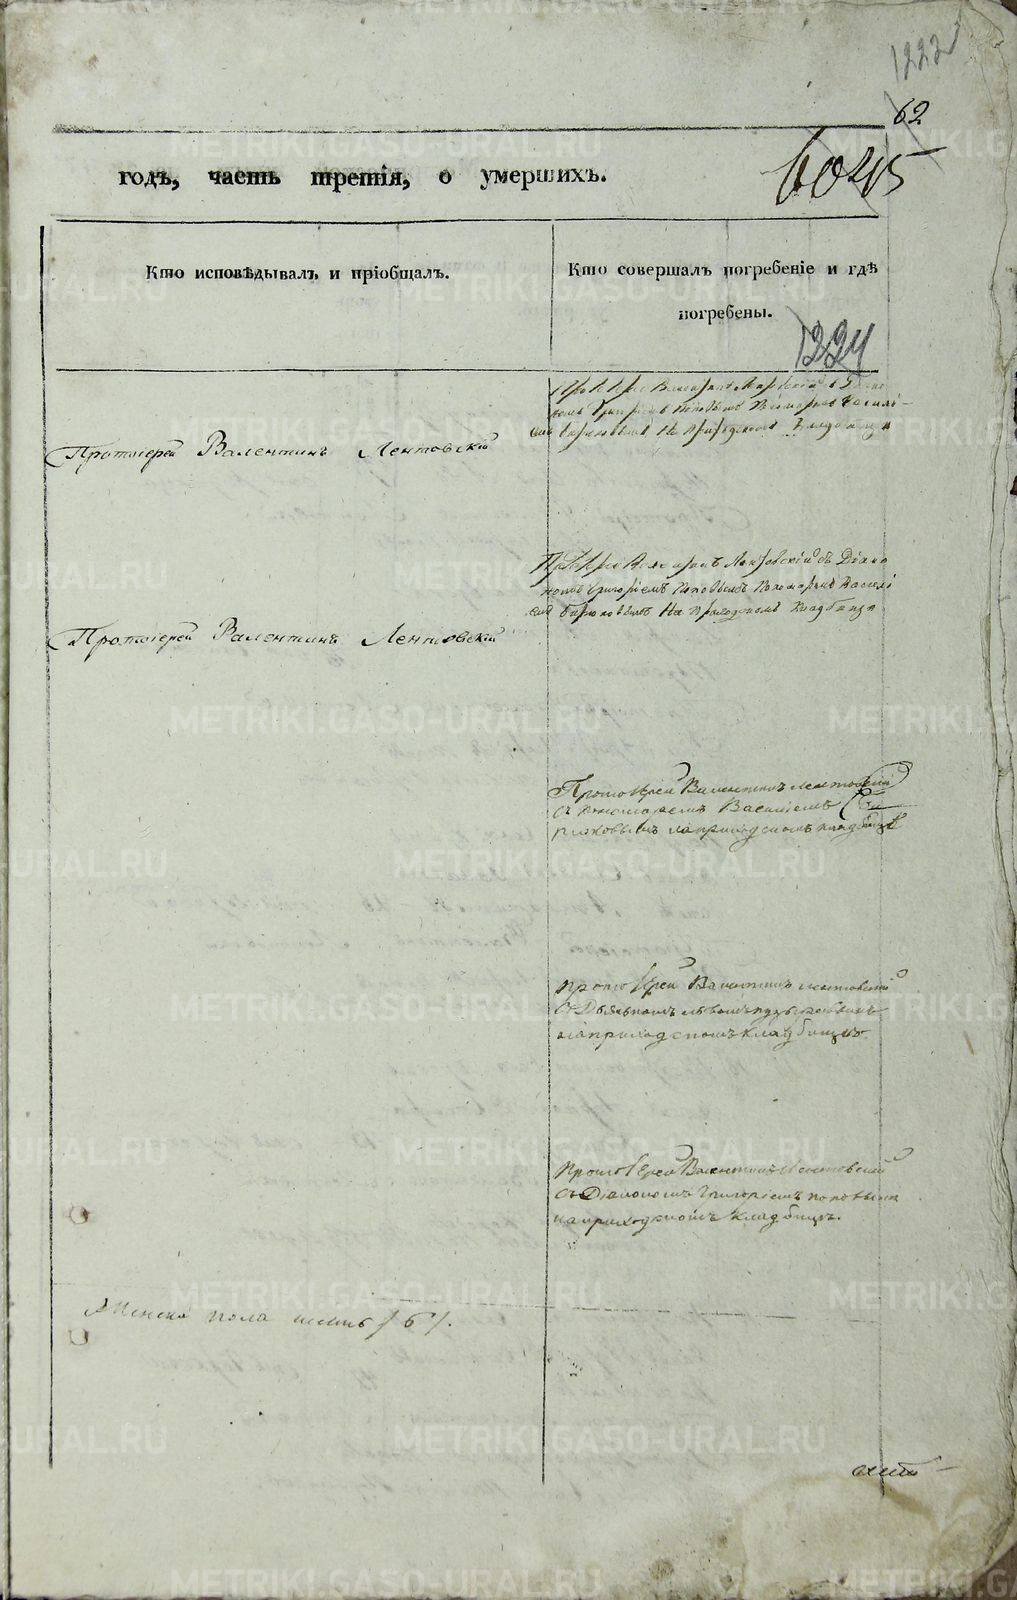 1223
62
6045
годъ, часть третія, о умершихъ.
Кто исповѣдывалъ и пріобщалъ.
Кто совершалъ погребеніе и гдѣ
погребены.
1224
Протоіерей Валентинъ Лентовскій
Григоріемъ Поповымъ Пономаремъ Василі-
емъ Бирюковымъ На Приходскомъ Кладбище
Протоіерей Валентинъ Лентовскій
Протоіерей Валентинъ Лентовскій съ Діако
номъ Григоріемъ Поповымъ Пономаремъ Василі
емъ Бирюковымъ На Приходскомъ Кладбище
Протоіерей Валентинъ Лентовскій
съ Пономаремъ Василіемъ Би
рюковымъ на приходскомъ кладбищѣ
Протоіерей Валентинъ Лентовскій
на приходскомъ кладбищѣ
Протоіерей Валентинъ Лентовскій
съ Діакономъ Григоріемъ поповымъ
на приходскомъ кладбищѣ.
Женска пола шесть /6/.
METRIKI.GASO-URAL.RU